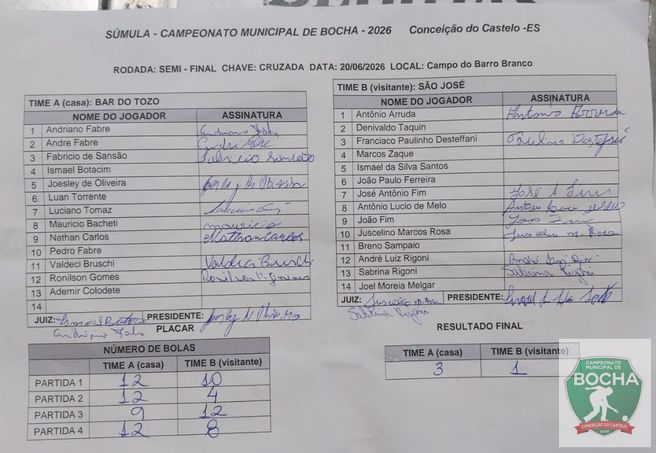 SÚMULA - CAMPEONATO MUNICIPAL DE BOCHA - 2026 Conceição do Castelo -ES
RODADA: SEMI - FINAL CHAVE: CRUZADA DATA: 20/06/2026 LOCAL: Campo do Barro Branco
TIME A (casa): BAR DO TOZO
NOME DO JOGADOR ASSINATURA
1 Andriano Fabre
2 Andre Fabre
3 Fabricio de Sansão
4 Ismael Botacim
5 Joesley de Oliveira
6 Luan Torrente
7 Luciano Tomaz
8 Mauricio Bacheti mauricio
9 Nathan Carlos Nathan Carlos
10 Pedro Fabre
11 Valdeci Bruschi Valdeci Brusch
12 Ronilson Gomes
13 Ademir Colodete
14
JUIZ: PRESIDENTE:
TIME B (visitante): SÃO JOSÉ
NOME DO JOGADOR ASSINATURA
1 Antônio Arruda Antônio Arruda
2 Denivaldo Taquin
3 Franciaco Paulinho Desteffani
4 Marcos Zaque
5 Ismael da Silva Santos
6 João Paulo Ferreira
7 José Antônio Fim José A Fim
8 Antônio Lucio de Melo
9 João Fim
10 Juscelino Marcos Rosa
11 Breno Sampaio
12 André Luiz Rigoni
13 Sabrina Rigoni Sabrina Rigoni
14 Joel Moreia Melgar
JUIZ: PRESIDENTE:
PLACAR
NÚMERO DE BOLAS
TIME A (casa) TIME B (visitante)
PARTIDA 1 12 10
PARTIDA 2 12 4
PARTIDA 3 9 12
PARTIDA 4 12 8
RESULTADO FINAL
TIME A (casa) TIME B (visitante)
3 1
CAMPEONATO
MUNICIPAL DE
BOCHA
CONCEIÇÃO DO CASTELO